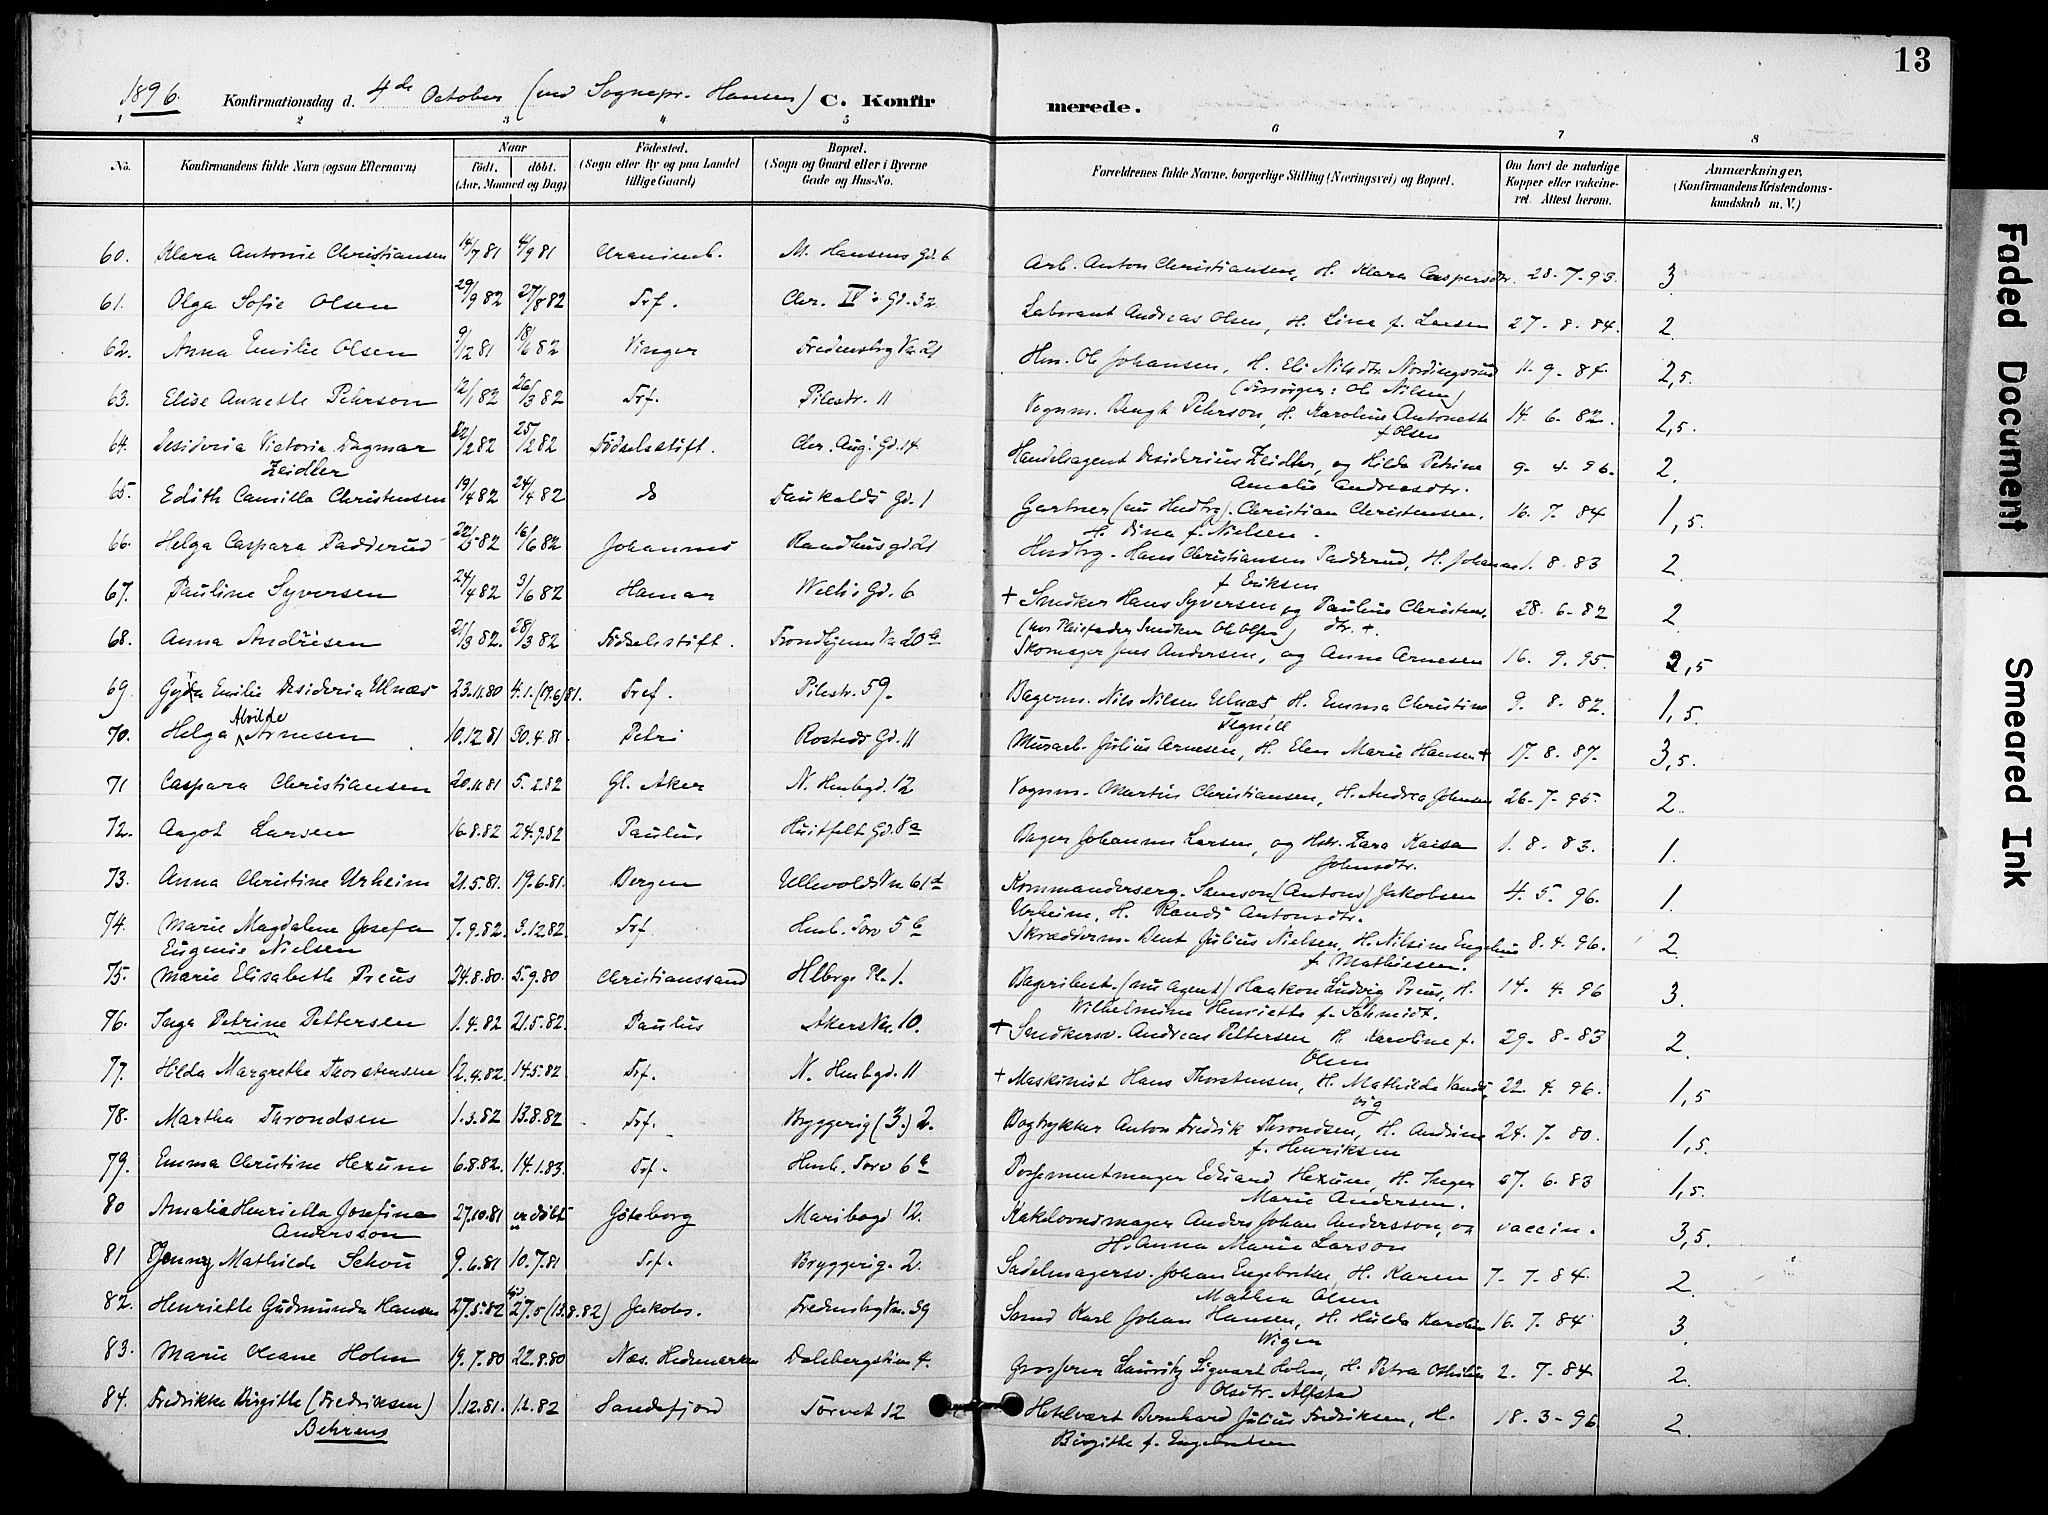 13
1896. Konfirmationsdag d. 4de October (ved Sognepr. Hansen) C. Konfirmerede.
1 2 3 4 5 6 7 8
No. Konfirmandens fulde Navn (ogsaa Efternavn) Naar født, døbt. (Aar, Maaned og Dag) Fødested. (Sogn eller By og paa Landet tillige Gaard) Bopæl. (Sogn og Gaard eller i Byerne Gade og Hus-No. Forældrenes fulde Navne, borgerlige Stilling (Næringsvei) og Bopæl. Om havt de naturlige Kopper eller vakcineret. Attest herom. Anmærkninger, (Konfirmandens Kristendomskundskab m. V.)
60. Klara Antonie Christiansen 14/7 81 4/9 81 Uranienb. M. Hansens Gd. 6 Arb. Anton Christiansen, H. Klara Caspersdtr. 28-7-93. 3
61. Olga Sofie Olsen 29/9 82 27/8 82 Trf. Chr. IV's Gd. 32 Laborant Andreas Olsen, H. Lina f. Larsen 27-8-84. 2.
62. Anna Emilie Olsen 9/12 81 18/6 82 Vinger Fredensbg Vn. 21 Hm. Ole Johansen, H. Eli Nilsdtr. Nordingsrud (Forsørger: Ole Nilsen) 11-9-84. 2,5.
63. Elise Annette Peterson 12/1 82 26/3 82 Trf. Pilestr. 11 Vognm. Bengt Peterson, H. Karoline Antonette f. Olsen 14-6-82. 2,5.
64. Desideria Victoria Dagmar Zeidler 22/2 82 25/2 82 Fødselsstift. Chr. Aug. Gd. 14 Handelsagent Desiderius Zeidler, og Hilda Petrine Amalie Andreasdtr. 9-4-96. 2.
65. Edith Camilla Christensen 19/4 82 24/4 82 do Faukalds Gd. 1 Gartner (nu Hndlg). Christian Christensen, H. Dina f. Nielsen. 16-7-84 1,5.
66. Helga Caspara Padderud 22/5 82 16/6 82 Johannes Raadhusgd 21 Hndlg. Hans Christiansen Padderud, H. Johanne f. Eriksen 1-8-83 2.
67. Pauline Syversen 24/4 82 3/6 82 Hamar Welh's Gd. 6 + Snedker Hans Syversen og Pauline Christensdtr. +. (hos Pleiefader Snedker Ole Olsen) 28-6-82 2.
68. Anna Andrésen 21/3 82. 28/3 82 Fødselsstift. Trondhjems Vn. 20 b Skomager Jens Andersen, og Anne Arnesen 16.9.95. 2,5
69. Gyda Emilie Desideria Ulnæs 23.11.80 4.1.(19.6)81. Tref. Pilestr. 59. Bagerm. Nils Nilsen Ulnæs H. Emma Christine Tegnell 9.8.82. 1,5.
70. Helga Alvilde Arnesen 10.12.81 30.4.81. Petri Rosteds Gd. 11 Murarb. Julius Arnesen, H. Elen Marie Hansen + 17-8-87. 3,5.
71 Caspara Christiansen 20.11.81 5.2.82 Gl. Aker N. Hmbgd. 12 Vognm. Martin Christiansen, H. Andrea Johnsen 26-7-95. 2.
72. Aagot Larsen 16.8.82 24.9.82 Paulus Huitfelt Gd. 8 a Bager Johannes Larsen, og Hstr. Zara Kaisa Johnsdtr. 1.8-83. 1.
73. Anna Christine Urheim 21.5.81. 19.6.81. Bergen Ullevolds Vn. 61 d Kommandersерg. Samson (Antons) Jakobsen Urheim, H. Randi Antonsdtr. 4.5.96. 1.
74. Marie Magdalene Josefa Eugenie Nielsen 7.9.82. 3.12.82. Trf Hmb. Torv 5 b Skrædderm. Bent Julius Nielsen, H. Nilsine Engeline f. Mathiesen. 8.4.96. 2.
75. Marie Elisabeth Preus 24.8.80. 5.9.80 Christianssand Hlbrgs Pl. 1. Bageribest. (nu Agent) Haakon Ludvig Preus, H. Wilhelmine Henriette f. Schmidt. 14.4.96 3.
76. Inga Petrine Pettersen 1.4.82 21.5.82. Paulus Akers Vn. 10. + Snedkersv. Andreas Pettersen H. Karoline f. Olsen 29-8-83 2.
77. Hilda Margrethe Thorstensen 12.4.82. 14.5.82 Trf. N. Hmbgd. 11 + Maskinist Hans Thorstensen, H. Mathilda Vandsvig 22.4.96. 1,5
78. Martha Throndsen 1.3.82 13.8.82 Trf. Bryggerig (3.) 2. Bogtrykker Anton Fredrik Throndsen, H. Andrine f. Henriksen 24.7.80. 1,5.
79. Emma Christine Hexum 6.8.82. 14.1.83. Trf. Hmb. Torv 6 b Possementmager Edvard Hexum, H. Inger Marie Andersen. 27.6.83 1,5.
80 Amalia Henrietta Josefina Andersson 27.10.81 er døbt Göteborg Maribogd 12. Kakelovnsmager Anders Johan Andersson, og H. Anna Maria Larson vaccin. 3,5.
81 Jenny Mathilde Schou 9.6.81 10.7.81 Trf. Bryggerig. 2. Sadelmagersv. Johan Engebretsen, H. Karen Mathea Olsen 7-7-84. 2.
82. Henriette Gudmunda Hansen 27.5.82 27.5 (13.8.82) Jakobs. Fredensbg Vn. 39 Smed Karl Johan Hansen, H. Hulda Karoline Wigen 16.7.84 3.
83. Marie Oleane Holm 19.7.80 22.8.80 Næs. Hedemarken Dalsbergstien 4. Grosserer Lauritz Sigvart Holm, H. Petra Othilie Olsdtr. Alfstad 2.-7-84 2.
84. Fredrikke Birgitte (Fredriksen) Behrens 1.12.81. 1.1.82 Sandefjord Torvet 12 Hotelvært Bernhard Julius Fredriksen, H. Birgitte f. Engebretsen 18.3-96 2.
Faded Document
Smeared Ink